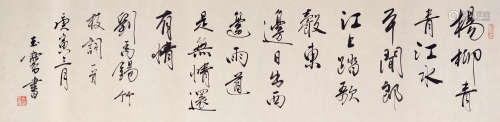 楊柳青
青江水
平聞郎
江上踏歌
聲東
邊日出西
邊雨道
是無情還
有情
劉禹錫竹
枝詞一首
庚寅三月
玉
書